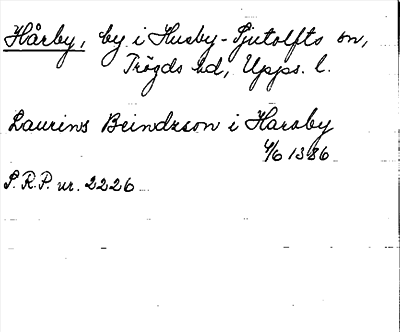 Hårby, by i Husby-Sjutolfts sn,
Trögds hd, Upps. l.
Laurins Beindzson i Haraby
4/6 1386
S.R.P. nr. 2226